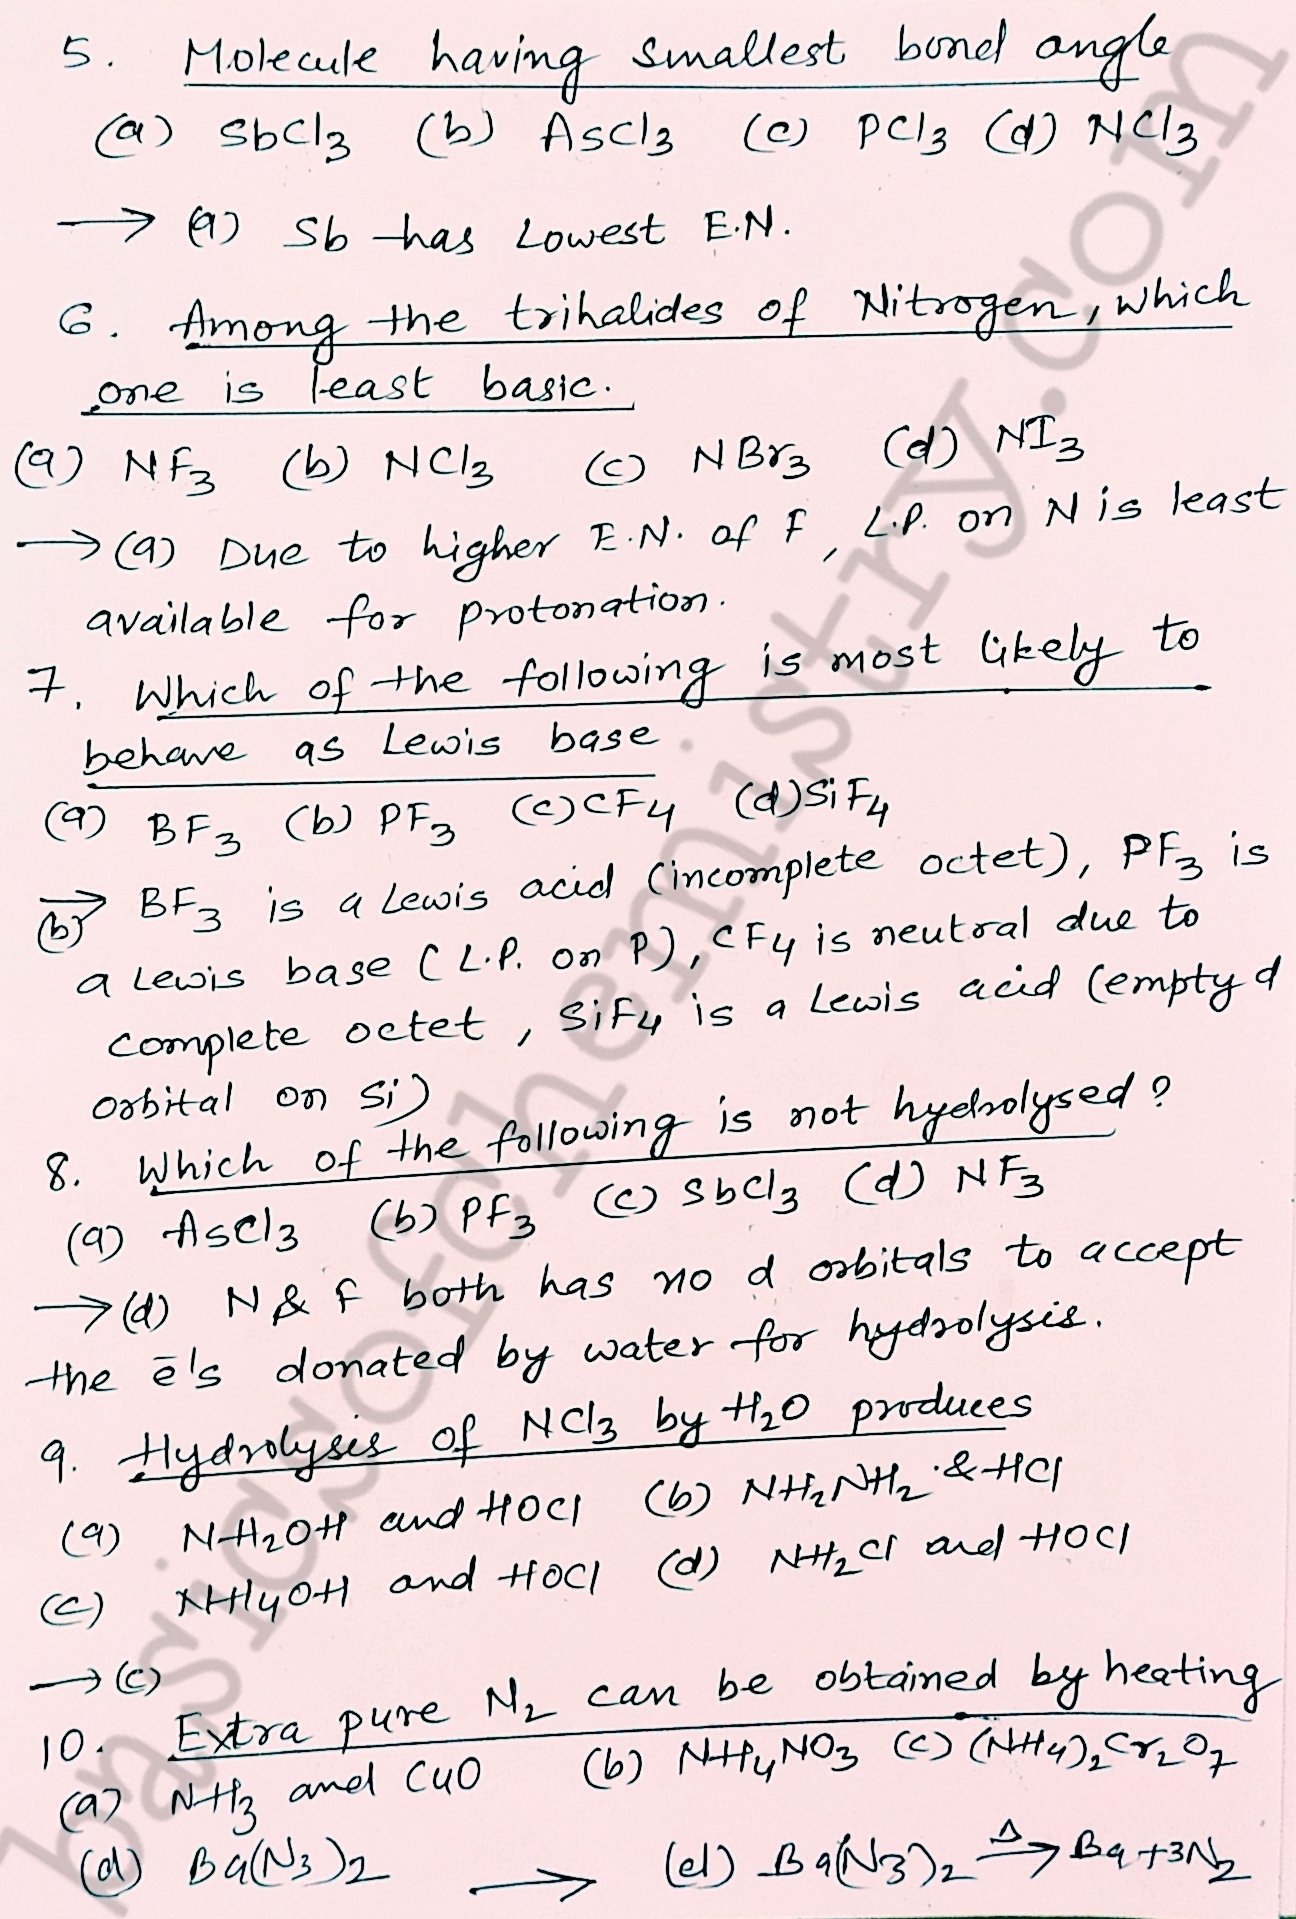 5. Molecule having smallest bond angle
(a) SbCl3 (b) AsCl3 (c) PCl3 (d) NCl3
→ (a) Sb has Lowest E.N.
6. Among the trihalides of Nitrogen, which
one is least basic.
(a) NF3 (b) NCl3 (c) NBr3 (d) NI3
→ (a) Due to higher E.N. of F, L.P. on N is least
available for protonation.
7. Which of the following is most likely to
behave as Lewis base
(a) BF3 (b) PF3 (c) CF4 (d) SiF4
→ (b) BF3 is a Lewis acid (incomplete octet), PF3 is
a Lewis base (L.P. on P), CF4 is neutral due to
complete octet, SiF4 is a Lewis acid (empty d
orbital on Si)
8. Which of the following is not hydrolysed?
(a) AsCl3 (b) PF3 (c) SbCl3 (d) NF3
→ (d) N & F both has no d orbitals to accept
the ē's donated by water for hydrolysis.
9. Hydrolysis of NCl3 by H2O produces
(a) NH2OH and HOCl (b) NH2NH2 & HCl
(c) NH4OH and HOCl (d) NH2Cl and HOCl
→ (c)
10. Extra pure N2 can be obtained by heating
(a) NH3 and CuO (b) NH4NO3 (c) (NH4)2Cr2O7
(d) Ba(N3)2 → (d) Ba(N3)2 Δ→ Ba + 3N2
basicsofchemistry.com